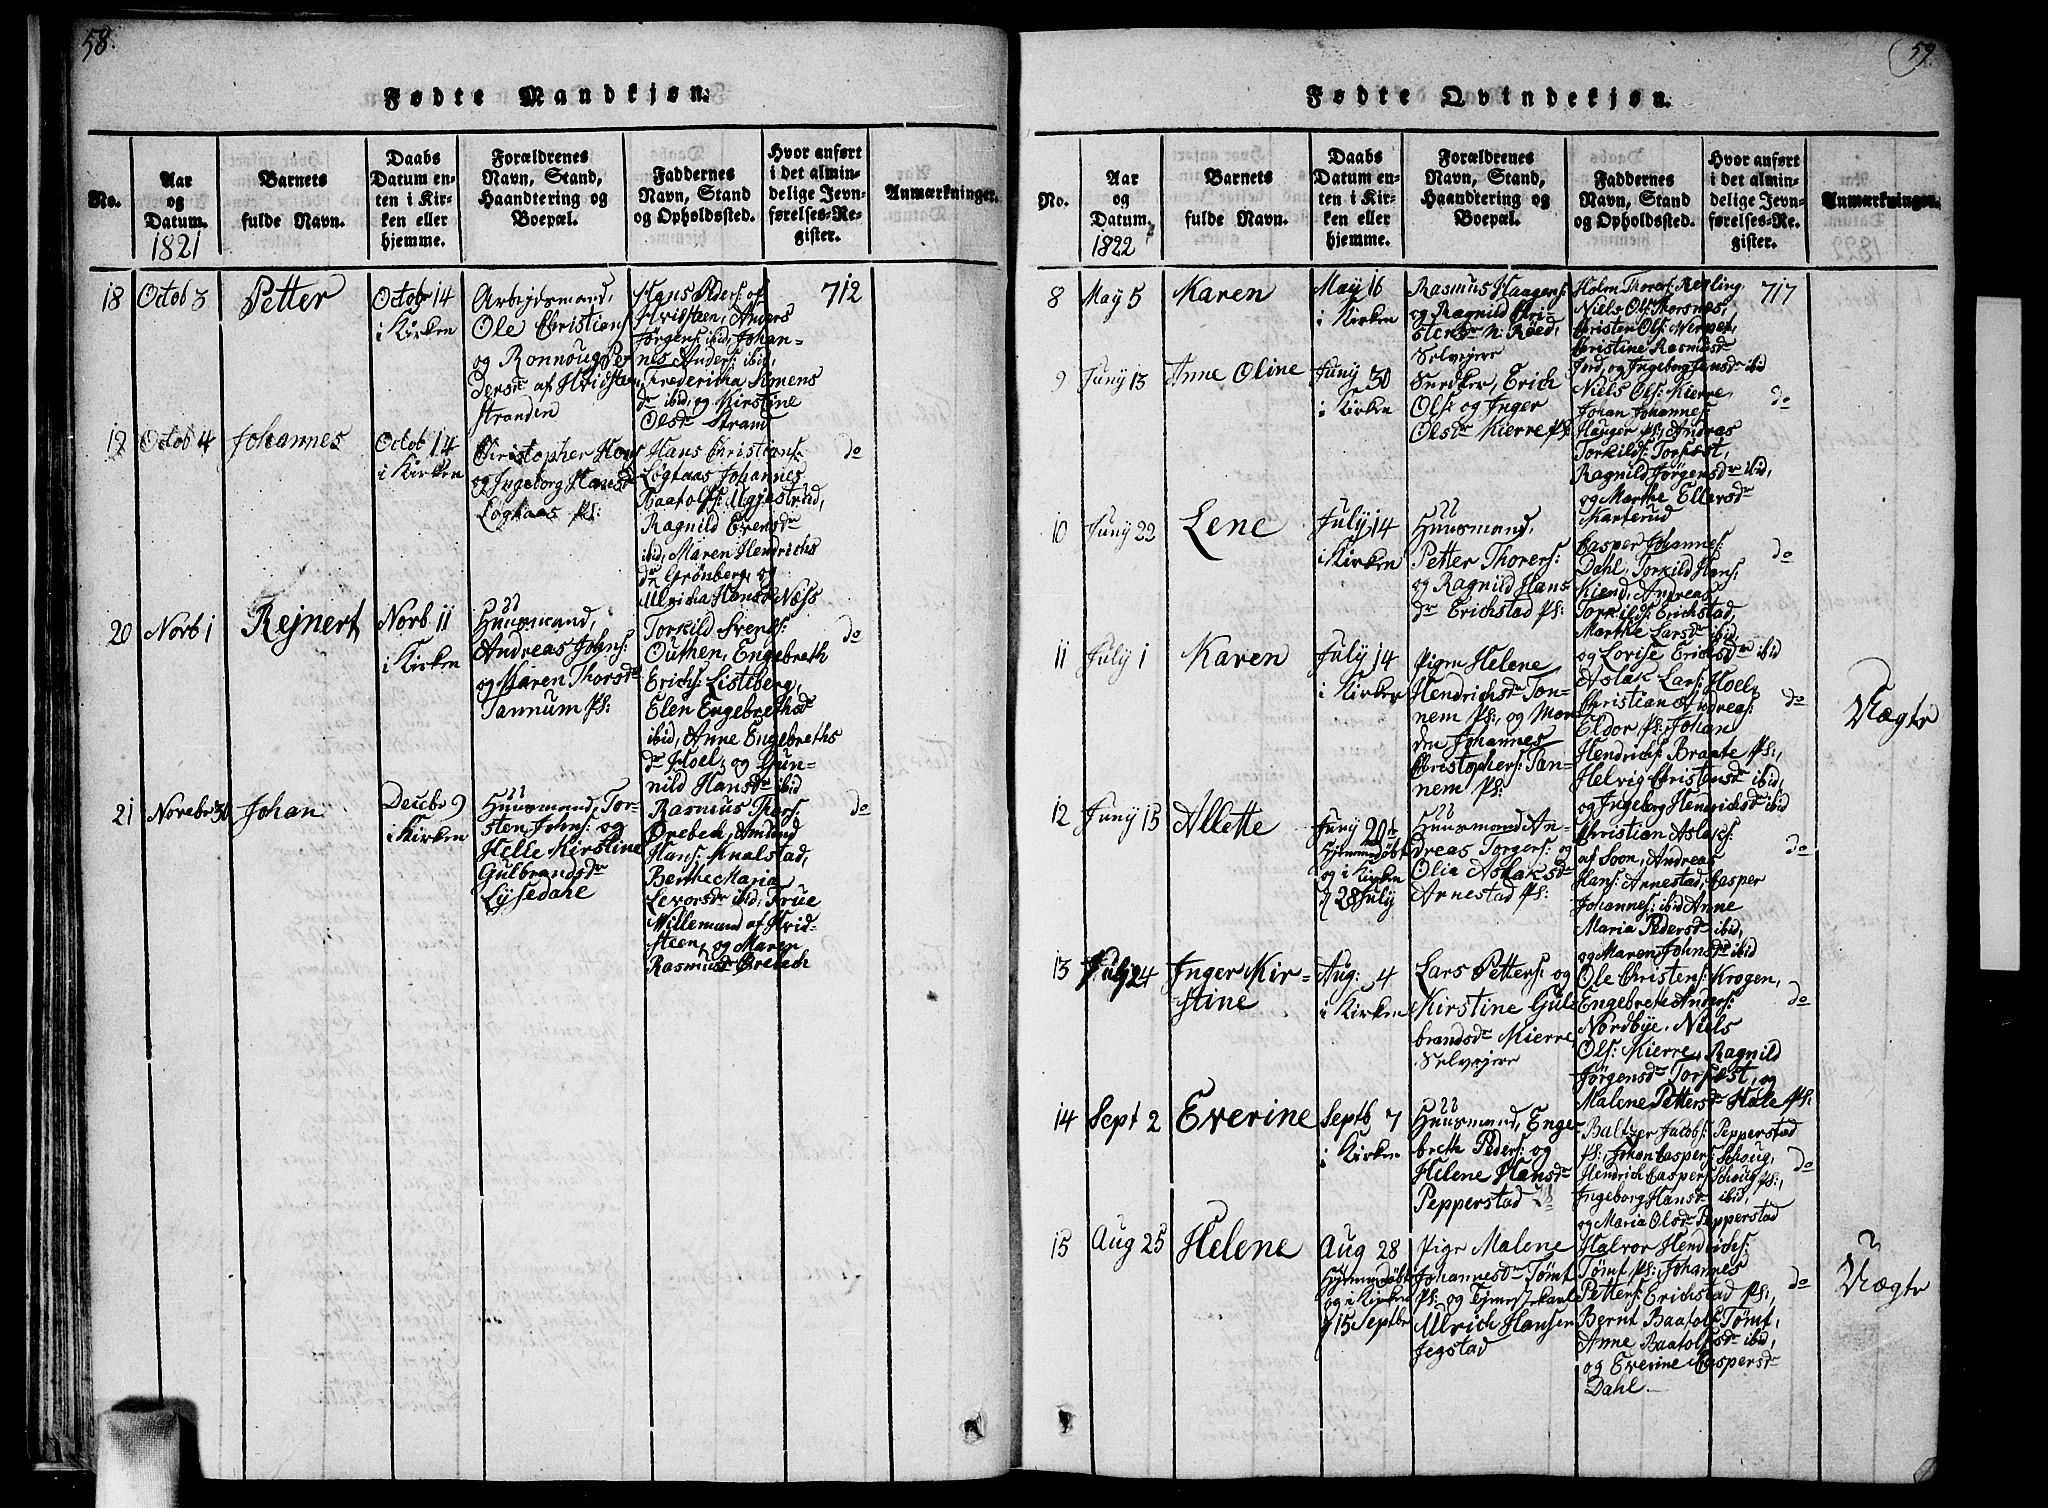 58.
Fødte Mandkjøn.
No.
Aar
og
Datum.
1821
Barnets
fulde Navn.
Daabs
Datum en-
ten i Kir-
ken eller
hjemme.
Forældrenes
Navn, Stand,
Haandtering og
Boepæl.
Faddernes
Navn, Stand
og Opholdssted.
Hvor anført
i det almin-
delige Jevn-
førelses-Re-
gister.
Anmærkninger.
18
Octob 3
Petter
Octobr 14
i Kirken
Arbejdsmand,
Ole Christians:
og Ronnoug Pe-
dersdr af Hvidsteen
stranden
Hans Peders: af
Hvidsteen, Anders
Jørgens: ibid, Johan-
nes Anders: ibid,
Fredericha Simens
dr ibid, og Kirstine
Olsdr Strand
712
19
Octob 4
Johannes
Octob 14
i Kirken
Christopher Hans:
og Ingeborg Hansdr
Løgtaas Ps:
Hans Christians:
Løgtaas, Johannes
Baatolfs:
Ragnild Evensdr
ibid, Maren Hendrichs
dr Grønberg, og
Ulricha Hansdr Næss
do
20
Novb 1
Rejnert
Novb 11
i Kirken
Huusmand,
Andreas Johns:
og Maren Thorsdr
Tannum Ps:
Torkild Svends:
Outhen, Engebreth
Erichs: Listeberg,
Elen Engebrethsdr
ibid, Anne Engebreths
dr Hoel, og Gun-
nild Hansdr ibid
do
21
Novebr 30
Johan
Decebr 9
i Kirken
Huusmand, Tor-
sten Johns: og
Helle Kirstine
Gulbrandsdr
Lysedahl
Rasmus Thors:
Orebech, Amund
Hans: Knalstad,
Berthe Maria
Levorsdr ibid, Frue
Willemand af Hvid-
steen, og Maren
Rasmusdr Orebech
do
59
Fødte Qvindekjøn.
No.
Aar
og
Datum.
1822
Barnets
fulde Navn.
Daabs
Datum en-
ten i Kir-
ken eller
hjemme.
Forældrenes
Navn, Stand,
Haandtering og
Boepæl.
Faddernes
Navn, Stand
og Opholdssted.
Hvor anført
i det almin-
delige Jevn-
førelses-Re-
gister.
Anmærkninger.
8
May 5
Karen
May 16
i Kirken
Rasmus Haagens:
og Ragnild Chri-
stensdr N: Røed,
Selvejere
Holm Thores: Refling
Niels Ols: Thorsnes,
Christen Ols: Nerpen,
Christine Rasmusdr
Ind, og Ingeborg Jensdr ibid
717
9
Juny 13
Anne Oline
Juny 30
i Kirken
Snedker, Erich
Ols: og Inger
Olsdr Kierre Ps:
Niels Ols: Kierre,
Johan Johannes:
Haugør Ps:, Andras
Torkilds: Torfæst,
Ragnild Jørgensdr ibid,
og Marthe Ellersdr
Marterud
do
10
Juny 22
Lene
July 14
i Kirken
Huusmand,
Petter Thorers:
og Ragnild Hans
dr Erichstad Ps:
Casper Johannes:
Dahl, Torkild Hans:
Kiend, Andreas
Torkilds: Erichstad,
Marthe Larsdr ibid,
og Lovise Erichsdr ibid
do
11
July 1
Karen
July 14
i Kirken
Pigen Helene
Hendrichsdr Ton-
nem Ps:, og Mor-
den Johannes
Christophers: Tan-
nem Ps:
Aslak Lars: Hoel,
Christian Andreas:
Eldor Ps:, Johan
Hendrichs: Braate Ps:,
Helvig Christensdr ibid,
og Ingeborg Hendrichsdr ibid
do
Uægte
12
Juny 15
Allette
Juny 20de
hjemmedøbt
og i Kirken
d 28 July
Huusmand An-
dreas Torgers: og
Olia Aslaksdr
Arnestad Ps:
Christian Aslaks:
af Soon, Andreas
Hans: Arnestad, Casper
Johannes: ibid Anne
Maria Pedersdr ibid,
og Maren Johnsdr ibid
do
13
July 24
Inger Kir-
stine
Aug: 4
i Kirken
Lars Petters: og
Kirstine Gul-
brandsdr Kierre,
Selvejere
Ole Christens: Krogen,
Engebreth Anders:
Nordbye, Niels
Ols: Kierre, Ragnild
Jørgensdr Torfæst, og
Malene Pettersdr Hale Ps:
do
14
Sept 2
Everine
Septb 7
i Kirken
Huusmand, Enge-
breth Peders: og
Helene Hansdr
Pepperstad Ps
Baltzer Jacobs: Pepperstad
Ps:, Johan Caspers: Schoug,
Hendrich Caspers: Schoug Ps:,
Ingeborg Hansdr ibid,
og Maria Olsdr Pepperstad
do
15
Aug 25
Helene
Aug 28
hjemmedøbt
og i Kirken
d 15 Septbr
Pige Malene
Johannesdr Tømt
Ps: og Tjenestekarl
Ulrich Hansen
Jegstad
Halvor Hendrichs:
Tømt Ps:, Johannes
Petters: Erichstad Ps:,
Bernt Baatolfs: Tømt,
Anne Baatolfsdr ibid,
og Everine Caspersdr
Dahl.
do
Uægte